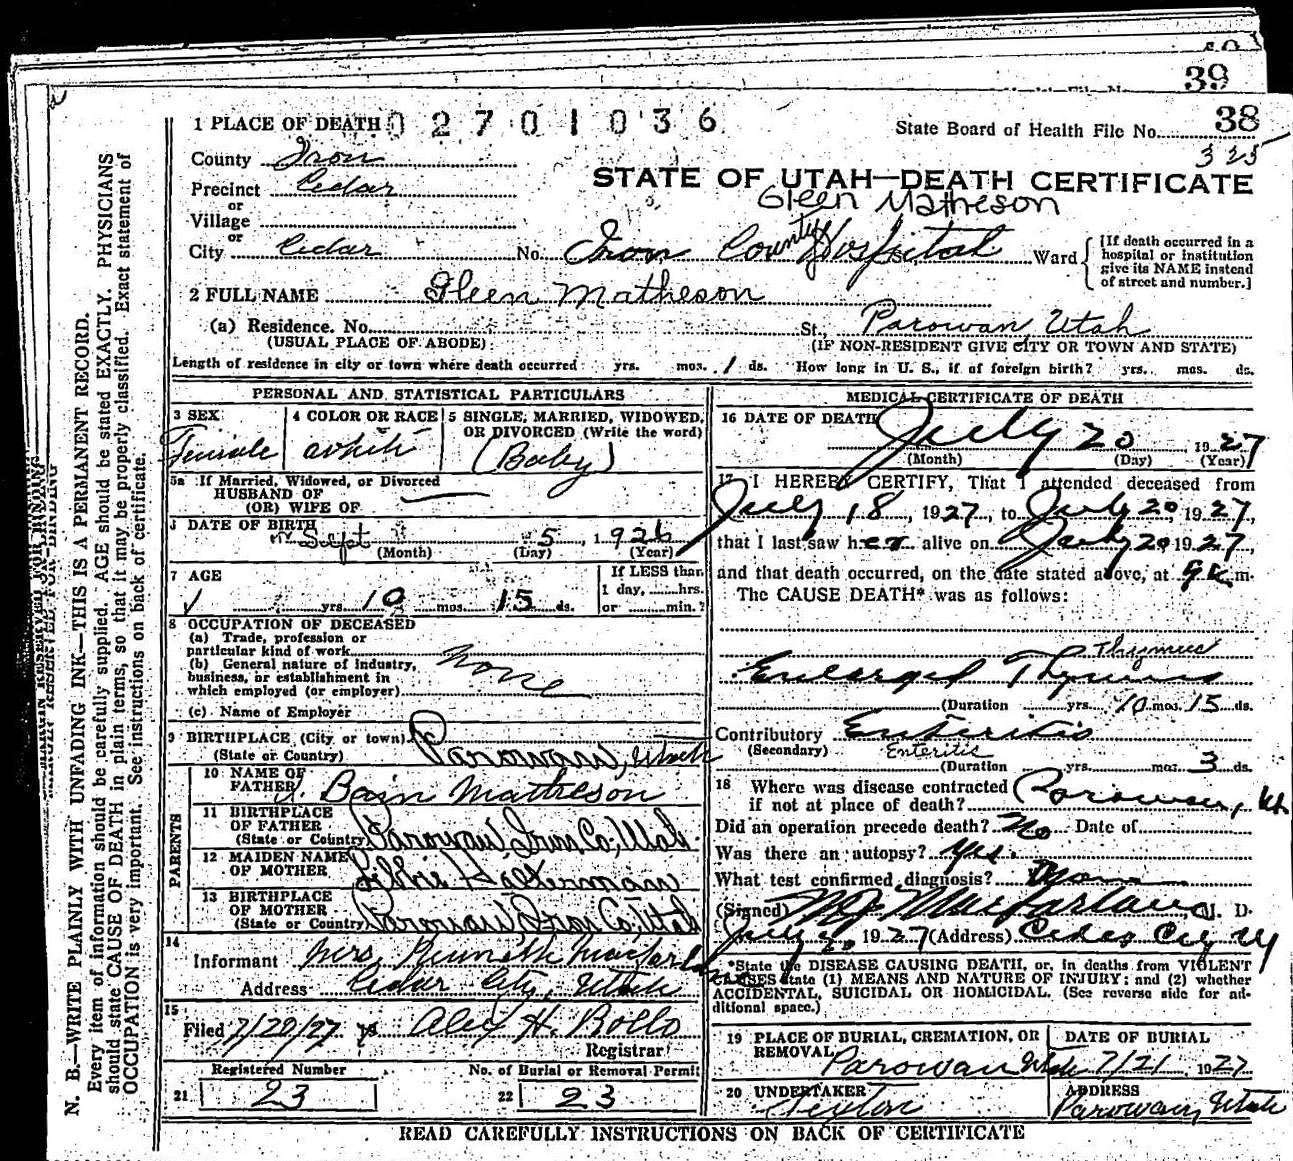 39
38
1 PLACE OF DEATH 02701036
State Board of Health File No.
325
County Iron
STATE OF UTAH—DEATH CERTIFICATE
Precinct Cedar
Gleen Matheson
or
Village
or
City Cedar No. Iron County Hospital St., Ward
[If death occurred in a hospital or institution give its NAME instead of street and number.]
2 FULL NAME Gleen Matheson
(a) Residence. No. St., Parowan, Utah
(USUAL PLACE OF ABODE) (IF NON-RESIDENT GIVE CITY OR TOWN AND STATE)
Length of residence in city or town where death occurred yrs. mos. 1 ds. How long in U. S., if of foreign birth? yrs. mos. ds.
PERSONAL AND STATISTICAL PARTICULARS
3 SEX
Female
4 COLOR OR RACE
white
5 SINGLE, MARRIED, WIDOWED, OR DIVORCED (Write the word)
(Baby)
5a If Married, Widowed, or Divorced
HUSBAND OF
(OR) WIFE OF
DATE OF BIRTH
Sept 5, 1926
(Month) (Day) (Year)
7 AGE
yrs. 10 mos. 15 ds.
If LESS than
1 day, hrs.
or min.?
8 OCCUPATION OF DECEASED
(a) Trade, profession or
particular kind of work
(b) General nature of industry,
business, or establishment in
which employed (or employer)
None
(c) Name of Employer
9 BIRTHPLACE (City or town)
(State or Country) Parowan, Utah
PARENTS
10 NAME OF
FATHER J. Bain Matheson
11 BIRTHPLACE
OF FATHER
(State or Country) Parowan Iron Co., Utah
12 MAIDEN NAME
OF MOTHER Libbie Halterman
13 BIRTHPLACE
OF MOTHER
(State or Country) Parowan Iron Co., Utah
14
Informant Mrs. Kenneth Macfarlane
Address Cedar City, Utah
15
Filed 7/20/27 Alex H. Rollo
Registrar
Registered Number
21 23
No. of Burial or Removal Permit
22 23
MEDICAL CERTIFICATE OF DEATH
16 DATE OF DEATH
July 20, 1927
(Month) (Day) (Year)
17 I HEREBY CERTIFY, That I attended deceased from
July 18, 1927, to July 20, 1927,
that I last saw her alive on July 20 1927,
and that death occurred, on the date stated above, at 9 m.
The CAUSE DEATH* was as follows:
Thymus
Enlarged Thymus
(Duration yrs. 10 mos. 15 ds.
Contributory Enteritis
(Secondary) Enteritis
(Duration yrs. mos. 3 ds.
18 Where was disease contracted
if not at place of death? Parowan, Ut.
Did an operation precede death? No Date of
Was there an autopsy? Yes.
What test confirmed diagnosis?
(Signed) M J Macfarlane, M. D.
July 20 1927 (Address) Cedar City Ut
*State the DISEASE CAUSING DEATH, or, in deaths from VIOLENT
CAUSES state (1) MEANS AND NATURE OF INJURY; and (2) whether
ACCIDENTAL, SUICIDAL OR HOMICIDAL. (See reverse side for ad-
ditional space.)
19 PLACE OF BURIAL, CREMATION, OR
REMOVAL
Parowan Utah
DATE OF BURIAL
7/21, 1927
20 UNDERTAKER
Sexton
ADDRESS
Parowan, Utah
READ CAREFULLY INSTRUCTIONS ON BACK OF CERTIFICATE
MARGIN RESERVED FOR BINDING
N. B.—WRITE PLAINLY WITH UNFADING INK—THIS IS A PERMANENT RECORD.
Every item of information should be carefully supplied. AGE should be stated EXACTLY. PHYSICIANS
should state CAUSE OF DEATH in plain terms, so that it may be properly classified. Exact statement of
OCCUPATION is very important. See instructions on back of certificate.